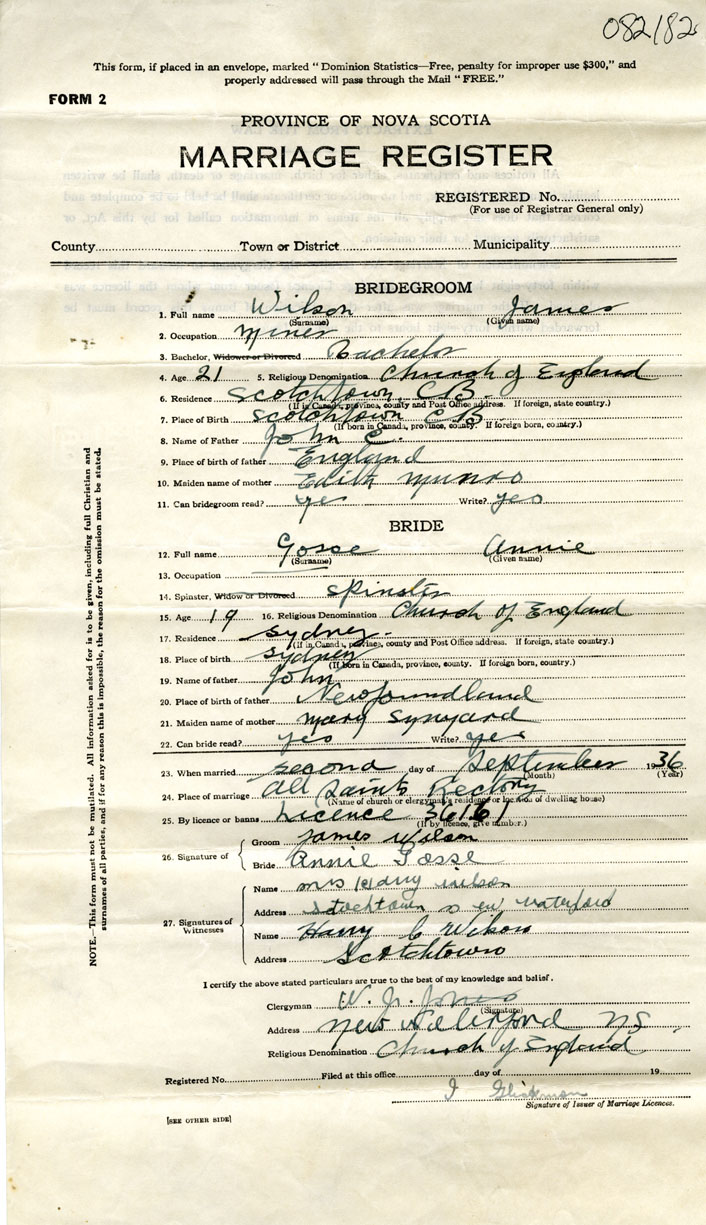 082182
This form, if placed in an envelope, marked "Dominion Statistics—Free, penalty for improper use $300," and
properly addressed will pass through the Mail "FREE."
FORM 2
PROVINCE OF NOVA SCOTIA
MARRIAGE REGISTER
REGISTERED No.
(For use of Registrar General only)
County Town or District Municipality
BRIDEGROOM
1. Full name Wilson James
(Surname) (Given name)
2. Occupation Miner
3. Bachelor, Widower or Divorced Bachelor
4. Age 21 5. Religious Denomination Church of England
6. Residence Scotchtown, C.B.
(If in Canada, province, county and Post Office address. If foreign, state country.)
7. Place of Birth Scotchtown C B
(If born in Canada, province, county. If foreign born, country.)
8. Name of Father John E.
9. Place of birth of father England
10. Maiden name of mother Edith Munro
11. Can bridegroom read? yes Write? yes
BRIDE
12. Full name Gosse Annie
(Surname) (Given name)
13. Occupation
14. Spinster, Widow or Divorced Spinster
15. Age 19 16. Religious Denomination Church of England
17. Residence Sydney.
(If in Canada, province, county and Post Office address. If foreign, state country.)
18. Place of birth Sydney
(If born in Canada, province, county. If foreign born, country.)
19. Name of father John
20. Place of birth of father Newfoundland
21. Maiden name of mother Mary Synyard
22. Can bride read? yes Write? yes
23. When married second day of September 1936
(Month) (Year)
24. Place of marriage All Saints Rectory
(Name of church or clergyman's residence or location of dwelling house)
25. By licence or banns Licence 36161
(If by licence, give number.)
26. Signature of Groom James Wilson
Bride Annie Gosse
27. Signatures of Witnesses
Name Mrs Harry Wilson
Address New Waterford
Name Harry C Wilson
Address Scotchtown
I certify the above stated particulars are true to the best of my knowledge and belief.
Clergyman W. J. Jones
(Signature)
Address New Waterford NS.
Religious Denomination Church of England
Registered No. Filed at this office day of 19
I
Signature of Issuer of Marriage Licences.
[SEE OTHER SIDE]
NOTE.—This form must not be mutilated. All information asked for is to be given, including full Christian and
surnames of all parties, and if for any reason this is impossible, the reason for the omission must be stated.